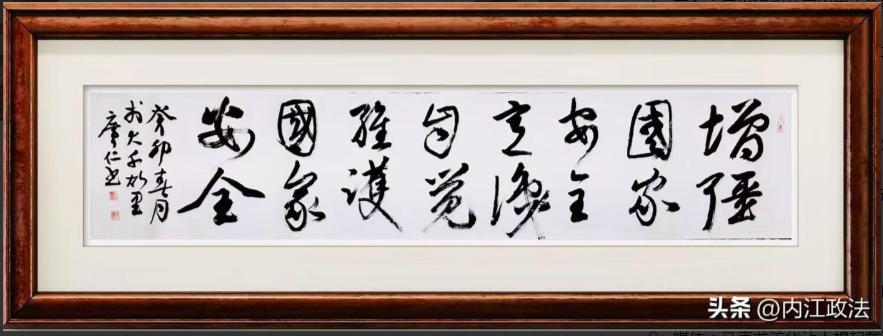 增强
国家
安全
意识
自觉
維護
國家
安全
癸卯春月
於大千故里
廖仁書
头条 @内江政法